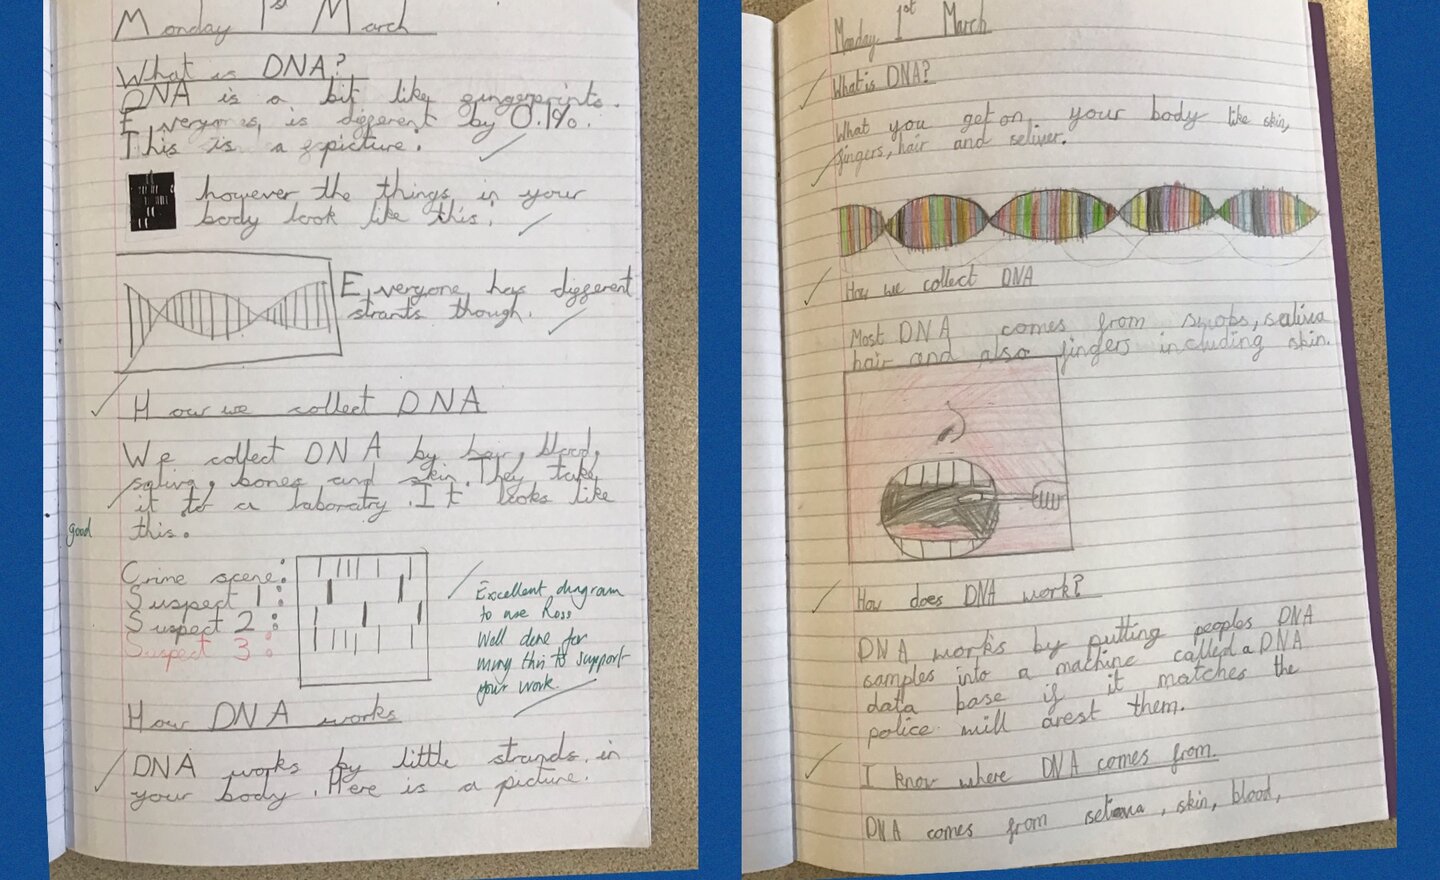 Monday 1st March
What is DNA?
DNA is a bit like fingerprints.
Everyones is different by 0.1%.
This is a picture.
however the things in your
body look like this.
Everyone has different
strants though.
How we collect DNA
We collect DNA by hair, blood,
saliva, bones and skin. They take
it to a laboratry. It looks like
this.
good
Crime scene:
Suspect 1:
Suspect 2:
Suspect 3:
Excellent diagram
to use Ross
Well done for
using this to support
your work
How DNA works
DNA works by little strands in
your body. Here is a picture.
Monday 1st March
What is DNA?
What you get on your body like skin,
fingers, hair and seliver.
How we collect DNA
Most DNA comes from swobs, saliva
hair and also fingers including skin.
How does DNA work?
DNA works by putting peoples DNA
samples into a machine called a DNA
data base if it matches the
police will arest them.
I know where DNA comes from.
DNA comes from skin, blood,